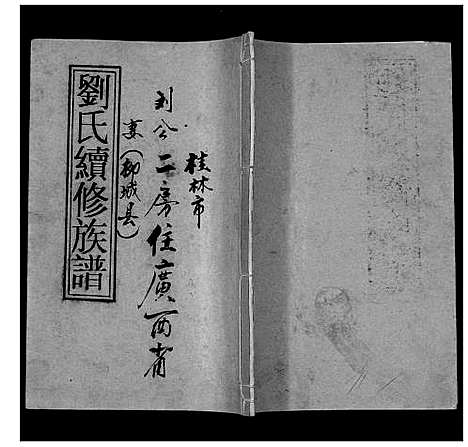 劉氏續修族譜
桂林市
二房住廣西省
(柳城县)